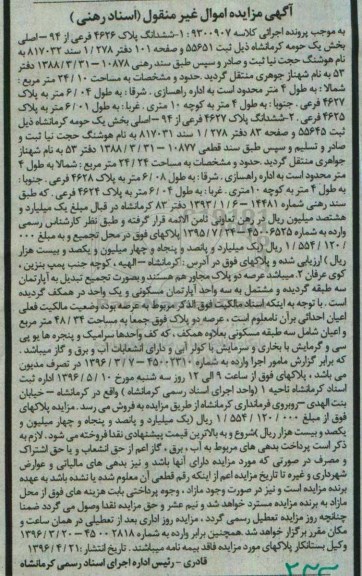 آگهی مزایده اموال غیر منقول (اسناد رهنی)
به موجب پرونده اجرائی کلاسه ۹۳۰۰۹۰۷ : ۱-ششدانگ پلاک ۴۶۲۶ فرعی از ۹۴ – اصلی
بخش یک حومه کرمانشاه ذیل ثبت ۵۵۶۵۱ و صفحه ۱۰۱ دفتر ۲۷۸ / ۱ سند ۸۱۷۰۳۲ به
نام هوشنگ حجت نیا ثبت و صادر و سپس طبق سند رهنی ۱۰۸۷۸ – ۱۳۸۸/۳/۳۱ دفتر
۵۳ به نام شهناز جوهری منتقل گردید .حدود و مشخصات به مساحت ۱۰ / ۲۴ متر مربع :
شمالا : به طول ۴ متر محدود است به اداره راهسازی . شرقا : به طول ۰۴ / ۶ متر به پلاک
۴۶۲۷ فرعی . جنوبا : به طول ۴ متر به کوچه ۱۰ متری . غربا : به طول ۰۱ / ۶ متر به پلاک
۴۶۲۵ فرعی . ۲-ششدانگ پلاک ۴۶۲۷ فرعی از ۹۴ –اصلی بخش یک حومه کرمانشاه ذیل
ثبت ۵۵۶۴۵ و صفحه ۸۳ دفتر ۲۷۸ / ۱ سند ۸۱۷۰۳۱ به نام هوشنگ حجت نیا ثبت و
صادر و تسلیم و سپس طبق سند قطعی ۱۰۸۷۷ – ۱۳۸۸/۳/۳۱ دفتر ۵۳ به نام شهناز
جواهری منتقل گردید .حدود و مشخصات به مساحت ۲۴ / ۲۴ متر مربع : شمالا به طول ۴
متر محدود است به اداره راهسازی . شرقا : به طول ۰۸ / ۶ متر به پلاک ۴۶۲۸ فرعی . جنوبا :
به طول ۴ متر به کوچه ۱۰متری . غربا : به طول ۰۴ / ۶ متر به پلاک ۴۶۲۴ فرعی . که طبق
سند رهنی شماره ۱۴۴۸۱ – ۱۳۹۳/۱/۰۶ دفتر ۸۳ کرمانشاه در قبال مبلغ یک میلیارد و
هشتصد میلیون ریال در رهن تعاونی ثامن الائمه قرار گرفته و طبق نظر کارشناس رسمی
وارده به شماره ۴۵۰۰۶۵۲۵ – ۱۳۹۵/۷/۲۴ پلاکهای فوق در محل تجمیع و به مبلغ ۰۰۰
/ ۱۲۰ / ۵۵۴ / ۱ ریال (یک میلیارد و پانصد و پنجاه و چهار میلیون و یکصد و بیست هزار
ریال ) ارزیابی شده و پلاکهای فوق در آدرس :کرمانشاه –الهیه ، کوچه جنب پمپ بنزین ،
کوی عرفان ۲ .میباشد عرصه دو پلاک مجاور هم هستند و بصورت تجمیع تبدیل به آپارتمان
سه طبقه گردیده و مشتمل به سه واحد آپارتمان مسکونی و یک واحد در همکف گردیده
است . با توجه به اینکه اسناد مالکیت فوق الذکر مربوط به عرصه بوده وضعیت مالکیت فعلی
اعیان احداثی برآن نامعلوم است ، عرصه دو پلاک فوق جمعا به مساحت ۳۴ / ۴۸ متر مربع
و اعیان شامل سه طبقه مسکونی بعلاوه همکف ، که کف واحدها سرامیک و پنجره ها یو پی
سی و گرمایش با بخاری و سرمایش با کولر آبی و دارای انشعابات آب و برق و گاز میباشد .
که برابر گزارش مامور اجرا وارده به شماره ۴۵۰۰۲۳۱۰ – ۱۳۹۶/۳/۷ در تصرف مدیون
می باشد ، پلاکهای فوق از ساعت ۹ الی ۱۲ روز سه شنبه مورخ ۱۰ / ۵ /۱۳۹۶ اداره ثبت
اسناد کرمانشاه ناحیه ۱ (واحد اجرای اسناد رسمی کرمانشاه ) واقع در کرمانشاه – خیابان
بنت الهدی –روبروی فرمانداری کرمانشاه از طریق مزایده به فروش می رسد . مزایده پلاکهای
فوق از مبلغ ۰۰۰ / ۱۲۰ / ۵۵۴ / ۱ ریال (یک میلیارد و پانصد و پنجاه و چهار میلیون و
یکصد و بیست هزار ریال )شروع و به بالاترین قیمت پیشنهادی نقدا فروخته می شود . لازم به
ذکر است پرداخت بدهی های مربوط به آب ، برق ، گاز اعم از حق انشعاب و یا حق اشتراک
و مصرف در صورتی که مورد مزایده دارای آنها باشد و نیز بدهی های مالیاتی و عوارض
شهرداری و غیره تا تاریخ مزایده اعم از اینکه رقم قطعی آن معلوم شده یا نشده باشد به عهده
برنده مزایده است و نیز در صورت وجود مازاد ، وجوه پرداختی بابت هزینه های فوق از محل
مازاد به برنده مزایده مسترد خواهد شد و نیم عشر و حق مزایده نقدا وصول می گردد ضمنا
چنانچه روز مزایده تعطیل رسمی گردد ، مزایده روز اداری بعد از تعطیلی در همان ساعت و
مکان مقرر برگزار خواهد شد .همچنین برابر وارده به شماره ۴۵۰۰۲۸۱۸ – ۱۳۹۶/۳/۲۰
وکیل بستانکار پلاکهای مورد مزایده فاقد بیمه نامه میباشند . تاریخ انتشار :۱۳۹۶/۴/۲۱
قادری – رئیس اداره اجرای اسناد رسمی کرمانشاه